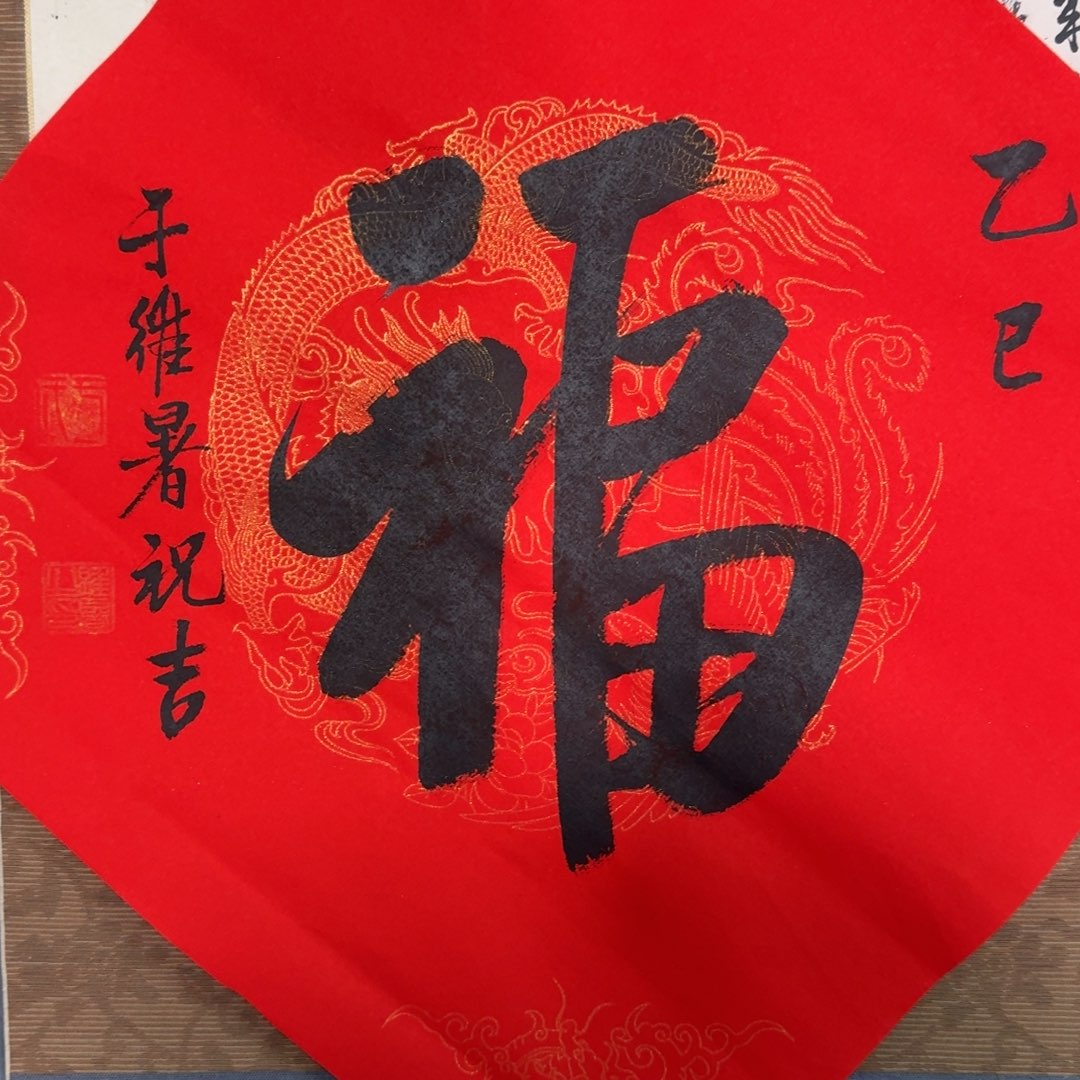 乙巳
福
于维暑祝吉